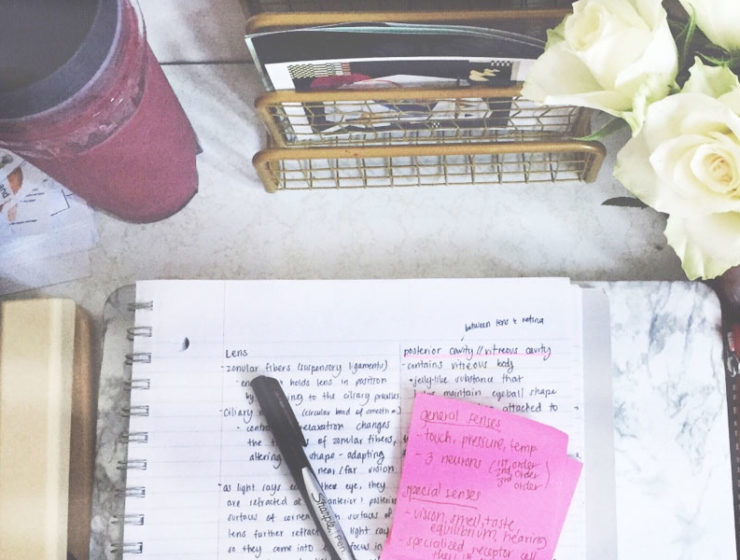 between lens & retina
Lens
- zonular fibers (suspensory ligaments)
holds lens in position
by to the ciliary process
- Ciliary (circular band of smooth m.)
relaxation changes
the of zonular fibers,
altering shape - adapting
near/far vision
- as light rays eye, they
are refracted anterior & posterior
surfaces of surfaces of
lens further refract light rays
so they come into focus in
posterior cavity // vitreous cavity
- contains vitreous body
- jelly-like substance that
maintain eyeball shape
attached to
general senses
- touch, pressure, temp
- 3 neurons (1st order
2nd order
3rd order)
special senses
- vision, smell, taste
equilibrium, hearing
specialized receptor cell
Sharpie PEN